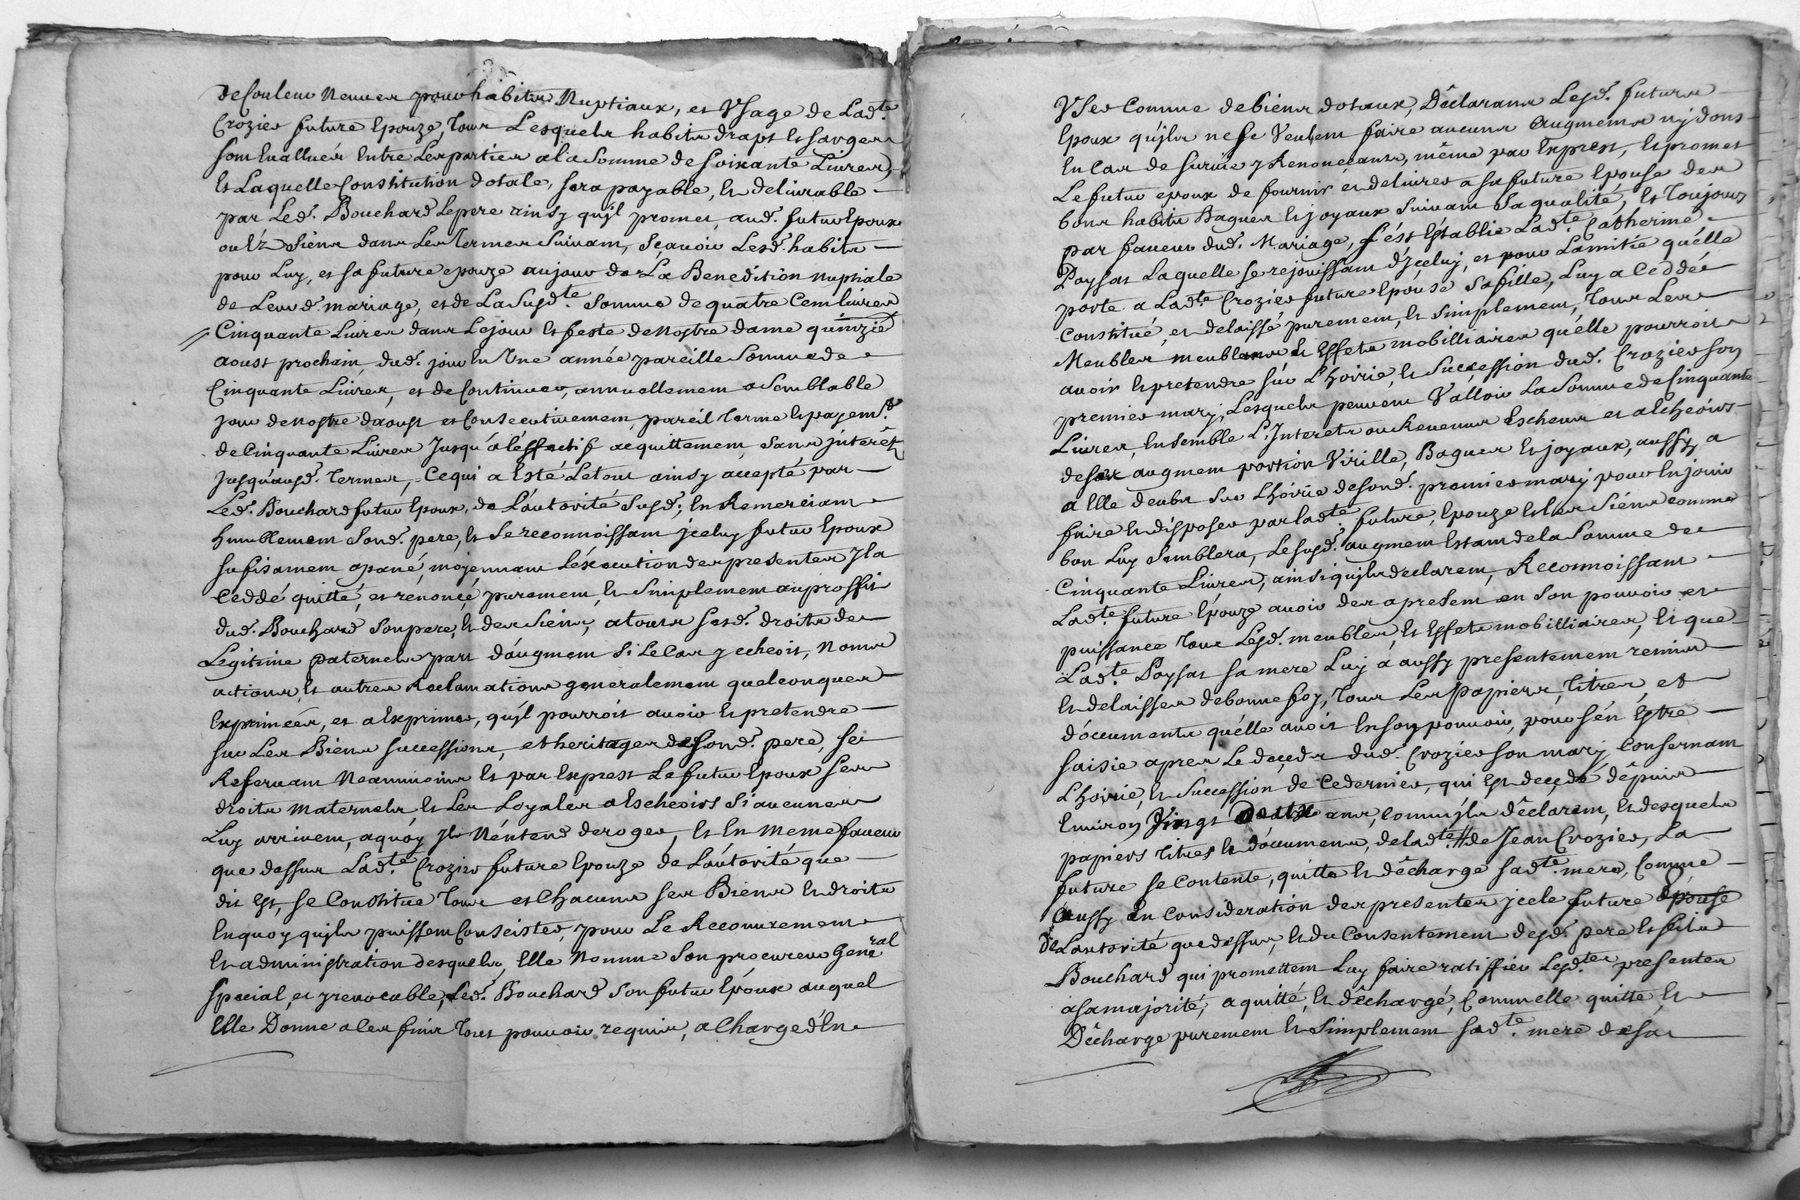 de Couleur Neuves pour habits Nuptiaux, et Usage de Lad.te
Crozier future Epouze, Tous Lesquels habits draps et sarges
sont Evallués Entre Les parties a la somme de soixante Livres,
Et Laquelle Constitution dotale, sera payable, Et deliurable
par Led. Bouchard Lepere ainsy qu'jl promet, aud. futur Epoux
ou Ez siens dans Les Termes suivant, sçavoir Lesd. habits
pour Luy, et sa future epouze au jour de La Benediction nuptiale
de Leurd. mariage, et de La Susd.te Somme de quatre Cent livres
Cinquante Livres dans Lejour Et feste de Nostre dame quinzie
aoust prochain, dud. jour En Une année pareille Somme de
Cinquante Livres, et de Continuer, annuellement a Semblable
jour de Nostre d'aoust et Consecutivement, pareil Terme Et payem.t
de Cinquante Livres Jusqu'a l'Effectif acquittement, sans jnterêt
jusqu'ausd. Termes, Ce qui a Esté Le tout ainsy accepté par
Led. Bouchard futur Epoux, de L'autorité Susd. En Remerciant
humblement Sond. pere, Et Se reconnoissant jceluy futur Epoux
sufisament apané, mojennant L'éxécution des presentes Jl a
Ceddé quitté, et renoncé purement, Et simplement au proffit
dud. Bouchard Son pere, Et des Siens, a tous sesd. droits de
Legitime paternels part d'augment Si Le Cas y echeoit, Noms
actions, Et autres Reclamations generalement quelconques
Exprimées, et a Exprimer, qu'jl pourroit avoir Et pretendre
sur Les Biens successions, et heritages de sond. pere, se
Reservant Neanmoins Et par Exprest Le futur Epoux ses
droits maternels Et Les Loyales a Escheoirs Si aucunes
Luy arrivent, a quoy jl N'éntend deroger, Et En meme faveur
que dessus Lad.te Crozier future Epouze de L'autorité que
dit Est, se Constitue Tous et Chacuns ses Biens Et droits
En quoy qu'jls puissent Conseister, pour Le Recouvrement
Et administration desquels, Elle Nomme Son procureur General
special, et jrevocable, Led. Bouchard Son futur Epoux auquel
Elle Donne a Ces fins Tous pouvoir requis, a Charge d'En
User Comme de biens dotaux, Déclarans Lesd. futurs
Epoux qu'jls ne se Veulent faire aucuns augments ny dons
En Cas de survie y Renonceants, même par Exprest, Et promet
Le futur epoux de fournir et delivrer a sa future Epouse des
bons habits Bagues Et joyaux suivant Sa qualité, Et Toujours
par faveur dud. Mariage, s'ést Establie Lad.te Catherine
Paysat Laquelle se rejouissant d'jceluy, et pour L'amitié qu'élle
porte a Lad.te Crozier future Epouse sa fille, Luy a Ceddée
Constitué, et delaissé purement, Et simplement, Tous Les
Meubles meublans Et Effets mobilliaires qu'élle pourroit
avoir Et pretendre sur L'hoirie, Et Succession dud. Crozier son
premier mary, Lesquels peuvent Valloir La Somme de Cinquante
Livres, Ensemble L'Interets ou Revenus Escheus et a Echeoirs
de ses augment portion Virille, Bagues Et joyaux, aussy a
a Elle deubs sur L'hoirie de sond. premier mary pour En jouir
faire Et disposer par lad.te future Epouze Et Les Siens comme
bon Luy Semblera, Le susd. augment Estant de la Somme de
Cinquante Livres, ainsi qu'jls declarent, Reconnoissant
Lad.te future Epouze avoir des apresent en Son pouvoir et
puissance Tous Lesd. meubles, Et Effets mobilliaires, Et que
Lad.te Paysat sa mere Luy á aussy presentement remis
Et delaisser debonne foy, Tous Les Papiers, Titres, et
documents qu'élle avoit En son pouvoir, pour s'én Estre
saisie apres Le deceds dud. Crozier son mary Consernant
L'hoirie, Et Succession de Cedernier, qui Est decedé dépuis
Environ Vingt deux ans, Comm'jls déclarent, Et desquels
papiers titres Et documents, de lad.te # de Jean Crozier, La
future se Contente, quitte Et décharge sad.te mere, Comme
aussy En Consideration des presentes jcele future epouse
de L'autorité que dessus, Et du Consentement desd. pere Et fils
Bouchard qui promettent Luy faire ratiffier Lesd.tes presentes
a sa majorité, a quitté, Et déchargé, Comm'elle quitte, Et
Décharge purement Et Simplement sad.te mere de sa